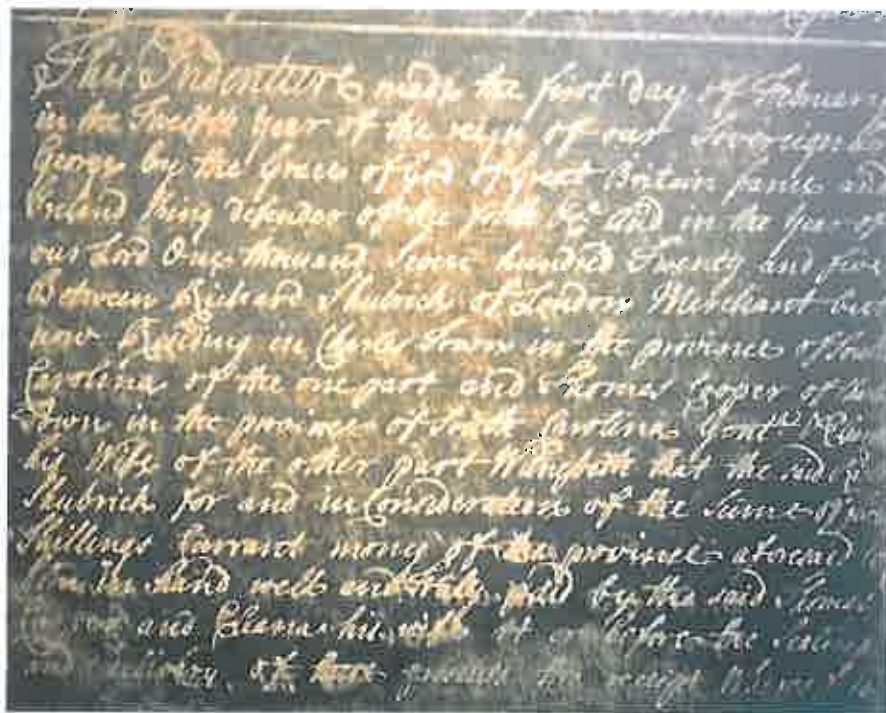 This Indenture made the first day of February
in the Twelfth year of the reign of our Sovereign
George by the Grace of God of Great Britain france and
Ireland King defender of the faith &c and in the year of
our Lord One thousand Seven hundred Twenty and five
Between Richard Shubrick of London Merchant but
now Residing in Charles Town in the province of South
Carolina of the one part and Thomas Cooper of
Town in the province of South Carolina Gent
his Wife of the other part Witnesseth that the said
Shubrick for and in Consideration of the Sume of
Shillings Currant mony of the province aforesaid
in hand well and truly paid by the said Thomas
and Eleana his wife at or before the
of these presents the receipt